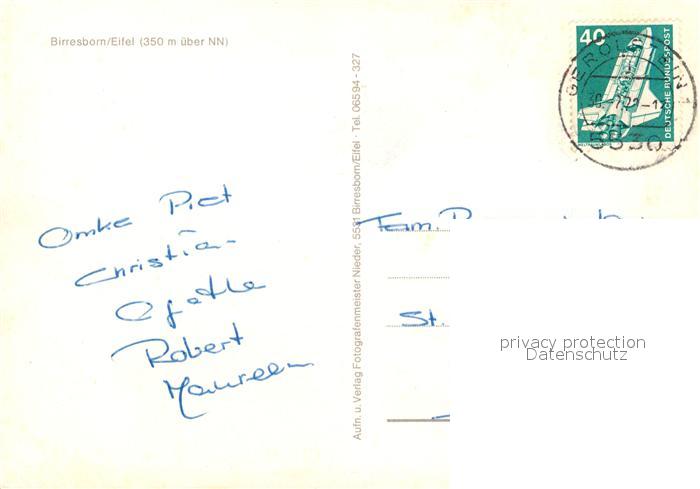 Birresborn/Eifel (350 m über NN)
40
DEUTSCHE BUNDESPOST
GEROLSTEIN 1
Omke Piet
Christia
Agathe
Robert
Maureen
Aufn. u. Verlag Fotografenmeister Nieder, 5531 Birresborn/Eifel · Tel. 06594 - 327
Fam.
St.
privacy protection
Datenschutz